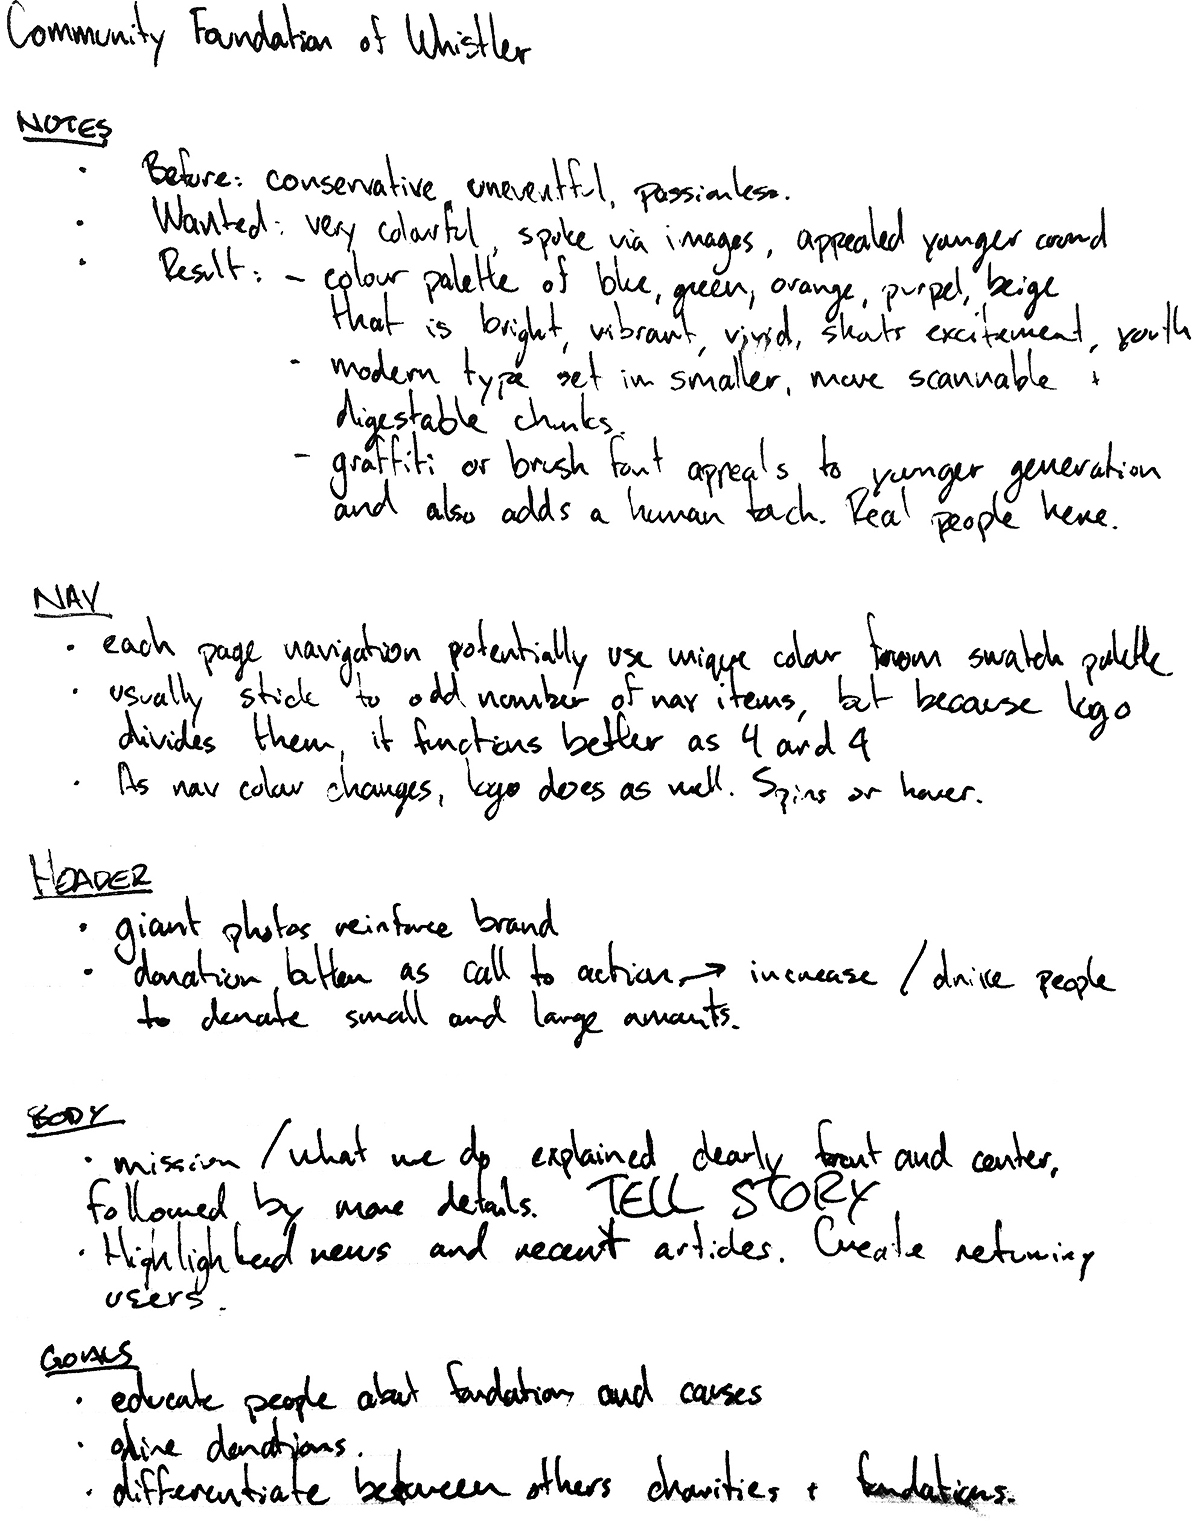 Community Foundation of Whistler
NOTES
· Before: conservative, uneventful, passionless.
· Wanted: very colourful, spoke via images, appealed younger crowd
· Result: - colour palette of blue, green, orange, purpel, beige
that is bright, vibrant, vivid, shouts excitement, youth
- modern type set in smaller, more scannable +
digestable chunks.
- graffiti or brush font appeals to younger generation
and also adds a human touch. Real people here.
NAV
· each page navigation potentially use unique colour from swatch palette
· usually stick to odd number of nav items, but because logo
divides them, it functions better as 4 and 4
· As nav colour changes, logo does as well. Spins or hover.
HEADER
· giant photos reinforce brand
· donation button as call to action → increase / drive people
to donate small and large amounts.
BODY
· mission / what we do explained clearly front and center,
followed by more details. TELL STORY
· Highlighted news and recent articles. Create returning
users.
GOALS
· educate people about foundation and causes
· online donations.
· differentiate between others charities + foundations.